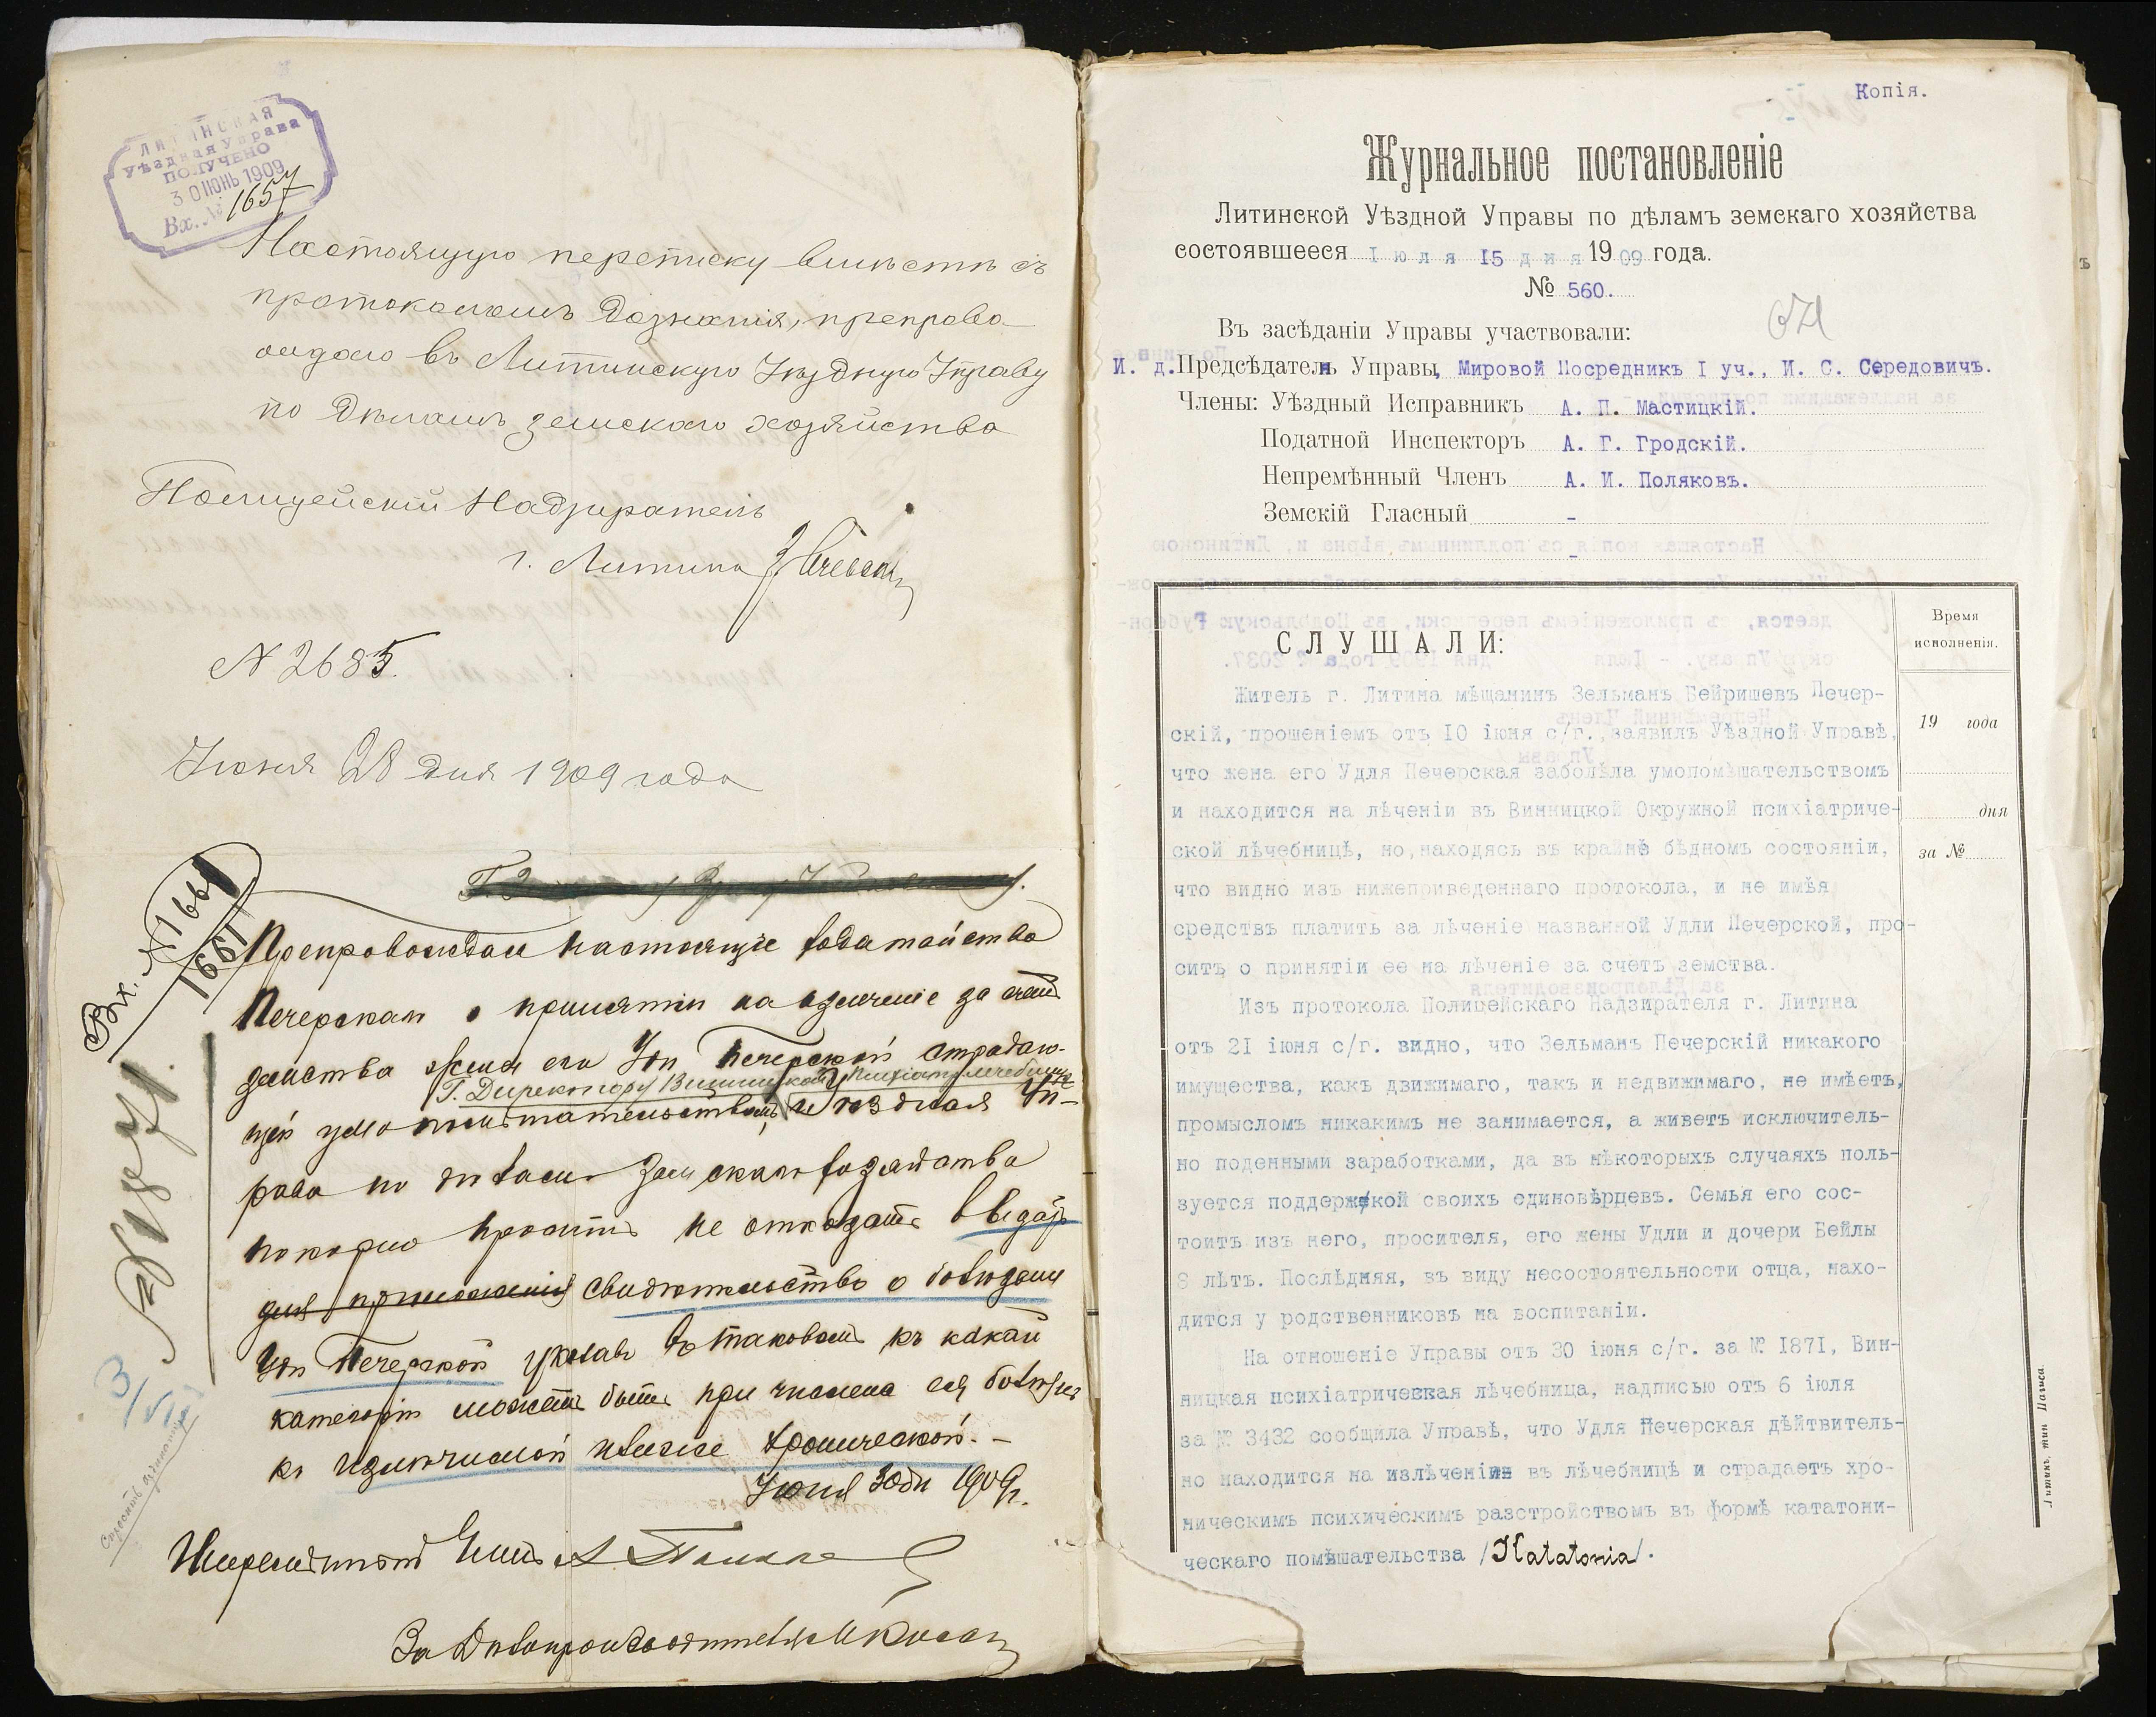 ЛИТИНСКАЯ
Уѣздная Управа
ПОЛУЧЕНО
30 ІЮНЬ 1909
Вх. № 1657
Настоящую переписку вмѣстѣ съ
протоколомъ дознанія, препрово-
ждаю въ Литинскую Уѣздную Управу
по дѣламъ земскаго хозяйства
Полицейскій Надзиратель
г. Литина
№ 2685.
Іюня 28 дня 1909 года
Вх. № 1661
1661
Препровождая настоящее ходатайство
Печерскаго о принятіи на излеченіе за счетъ
земства жены его Удли Печерской страдаю-
Г. Директору Винницкой Психіатр. лечебницы
щей умопомѣшательствомъ, Уѣздная Уп-
рава по дѣламъ Земскаго хозяйства
покорно проситъ не отказать выдать
для приложенія свидѣтельство о болѣзни
Удли Печерской указавъ въ таковомъ къ какой
категоріи можетъ быть причислена ея болѣзнь
къ излѣчимой или же хронической. –
Іюня 30 дн 1909 г.
3/VII
Непремѣнный Членъ А Поляковъ
За Дѣлопроизводителя
Копія.
Журнальное постановленіе
Литинской Уѣздной Управы по дѣламъ земскаго хозяйства
состоявшееся Іюля 15 дня 1909 года.
№ 560.
Въ засѣданіи Управы участвовали:
И. д. Предсѣдателя Управы, Мировой Посредникъ I уч., И. С. Середовичъ.
Члены: Уѣздный Исправникъ А. П. Мастицкій.
Податной Инспекторъ А. Г. Гродскій.
Непремѣнный Членъ А. И. Поляковъ.
Земскій Гласный -
-
СЛУШАЛИ:
Время
исполненія.
19 года
дня
за №
Житель г. Литина мѣщанинъ Зельманъ Бейришевъ Печер-
скій, прошеніемъ отъ 10 іюня с/г., заявилъ Уѣздной Управѣ,
что жена его Удля Печерская заболѣла умопомѣшательствомъ
и находится на лѣченіи въ Винницкой Окружной психіатриче-
ской лѣчебницѣ, но, находясь въ крайнѣ бѣдномъ состояніи,
что видно изъ нижеприведеннаго протокола, и не имѣя
средствъ платить за лѣченіе названной Удли Печерской, про-
ситъ о принятіи ее на лѣченіе за счетъ земства.
Изъ протокола Полицейскаго Надзирателя г. Литина
отъ 21 іюня с/г. видно, что Зельманъ Печерскій никакого
имущества, какъ движимаго, такъ и недвижимаго, не имѣетъ,
промысломъ никакимъ не занимается, а живетъ исключитель-
но поденными заработками, да въ нѣкоторыхъ случаяхъ поль-
зуется поддержкой своихъ единовѣрцевъ. Семья его сос-
тоитъ изъ него, просителя, его жены Удли и дочери Бейлы
8 лѣтъ. Послѣдняя, въ виду несостоятельности отца, нахо-
дится у родственниковъ на воспитаніи.
На отношеніе Управы отъ 30 іюня с/г. за № 1871, Вин-
ницкая психіатрическая лѣчебница, надписью отъ 6 іюля
за № 3432 сообщила Управѣ, что Удля Печерская дѣйтвитель-
но находится на излѣченіи въ лѣчебницѣ и страдаетъ хро-
ническимъ психическимъ разстройствомъ въ формѣ кататони-
ческаго помѣшательства /Katatonia/.